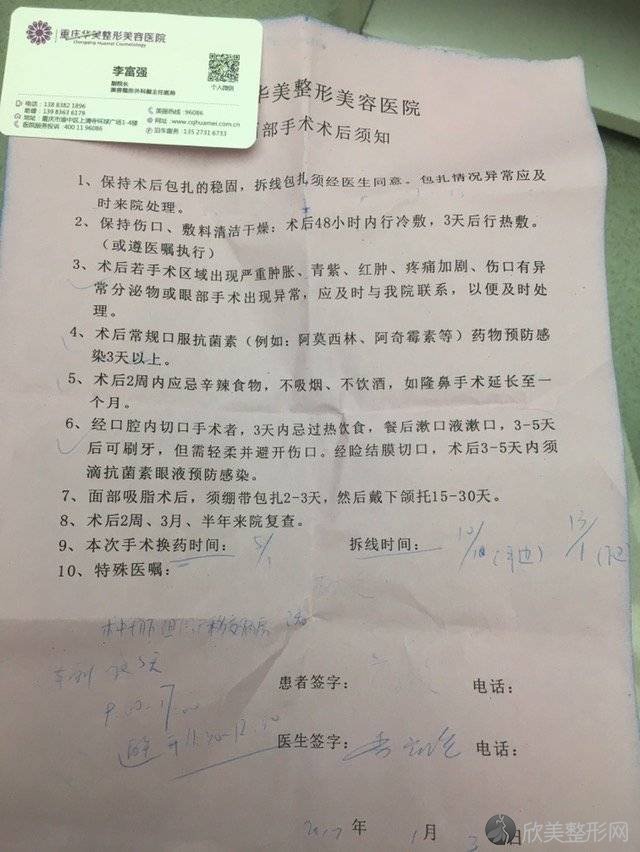 重庆华美整形美容医院
Chongqing Huamei Cosmetology
李富强
副院长
美容整形外科副主任医师
个人微信
电话：138 8382 1896
助理：139 8363 6179
地址：重庆市渝中区上清寺环球广场1-4楼
医院服务投诉：400 11 96086
美丽热线：96086
网址：www.cqhuamei.com.cn
泊车服务：135 2731 6733
华美整形美容医院
面部手术术后须知
1、保持术后包扎的稳固，拆线包扎须经医生同意。包扎情况异常应及
时来院处理。
2、保持伤口、敷料清洁干燥：术后48小时内行冷敷，3天后行热敷。
（或遵医嘱执行）
3、术后若手术区域出现严重肿胀、青紫、红肿、疼痛加剧、伤口有异
常分泌物或眼部手术出现异常，应及时与我院联系，以便及时处
理。
4、术后常规口服抗菌素（例如：阿莫西林、阿奇霉素等）药物预防感
染3天以上。
5、术后2周内应忌辛辣食物，不吸烟、不饮酒，如隆鼻手术延长至一
个月。
6、经口腔内切口手术者，3天内忌过热饮食，餐后漱口液漱口，3-5天
后可刷牙，但需轻柔并避开伤口。经睑结膜切口，术后3-5天内须
滴抗菌素眼液预防感染。
7、面部吸脂术后，须绷带包扎2-3天，然后戴下颌托15-30天。
8、术后2周、3月、半年来院复查。
9、本次手术换药时间：5/1 拆线时间：
10、特殊医嘱：
患者签字： 电话：
医生签字： 电话：
2017年1月3日
欣美整形网